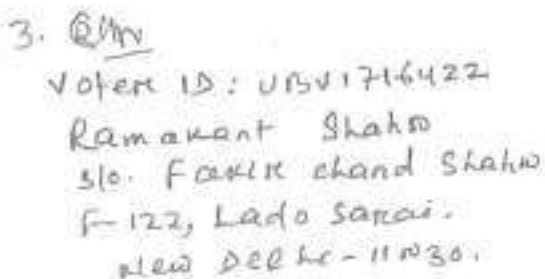 3.
Voter ID: UBV1716422
Ramakant Shaho
S/o. Fakir chand Shaho
F-122, Lado Sarai.
New Delhi - 110030.